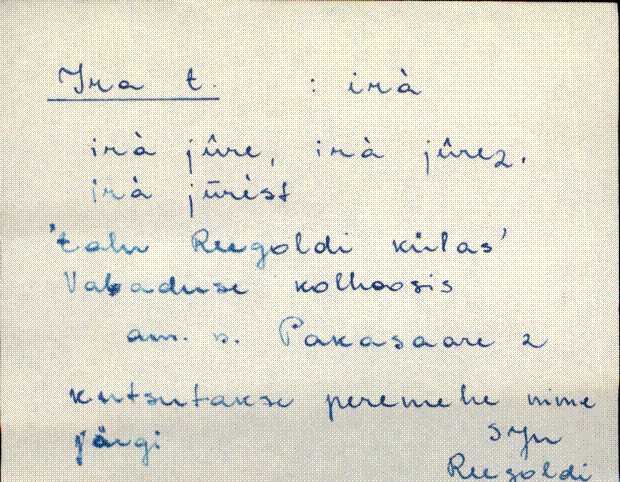 Ira t. : irà
irà jûre, irà jûrez.
irà jūrest
'talu Reegoldi külas'
Vabaduse kolhoosis
am. n. Pakasaare 2
kutsutakse peremehe nime
järgi SJn
Reegoldi